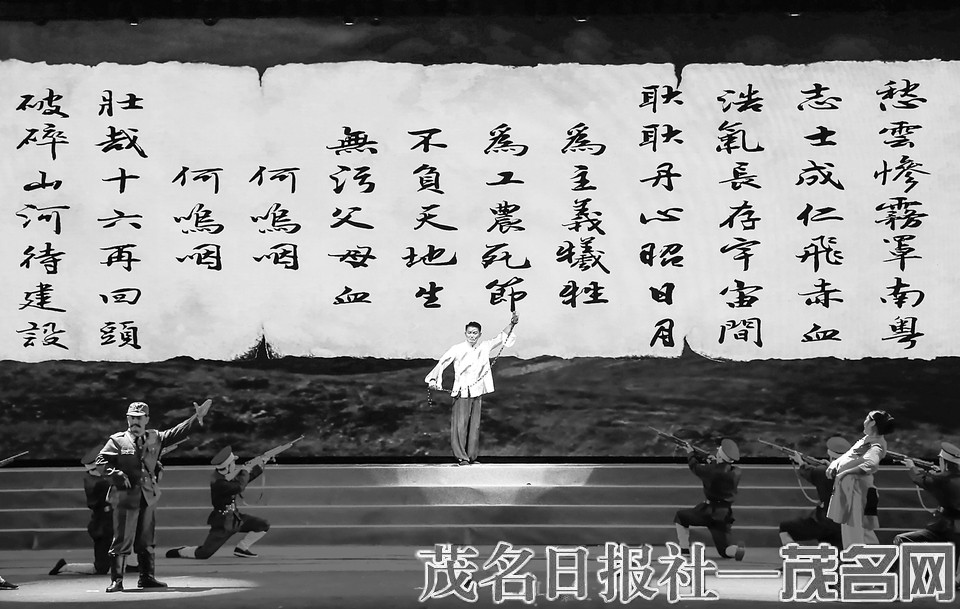 愁雲慘霧罩南粵
志士成仁飛赤血
浩氣長存宇宙間
耿耿丹心昭日月
為主義犧牲
為工農死節
不負天地生
無污父母血
何嗚咽
何嗚咽
壯哉十六再回頭
破碎山河待建設
茂名日报社—茂名网